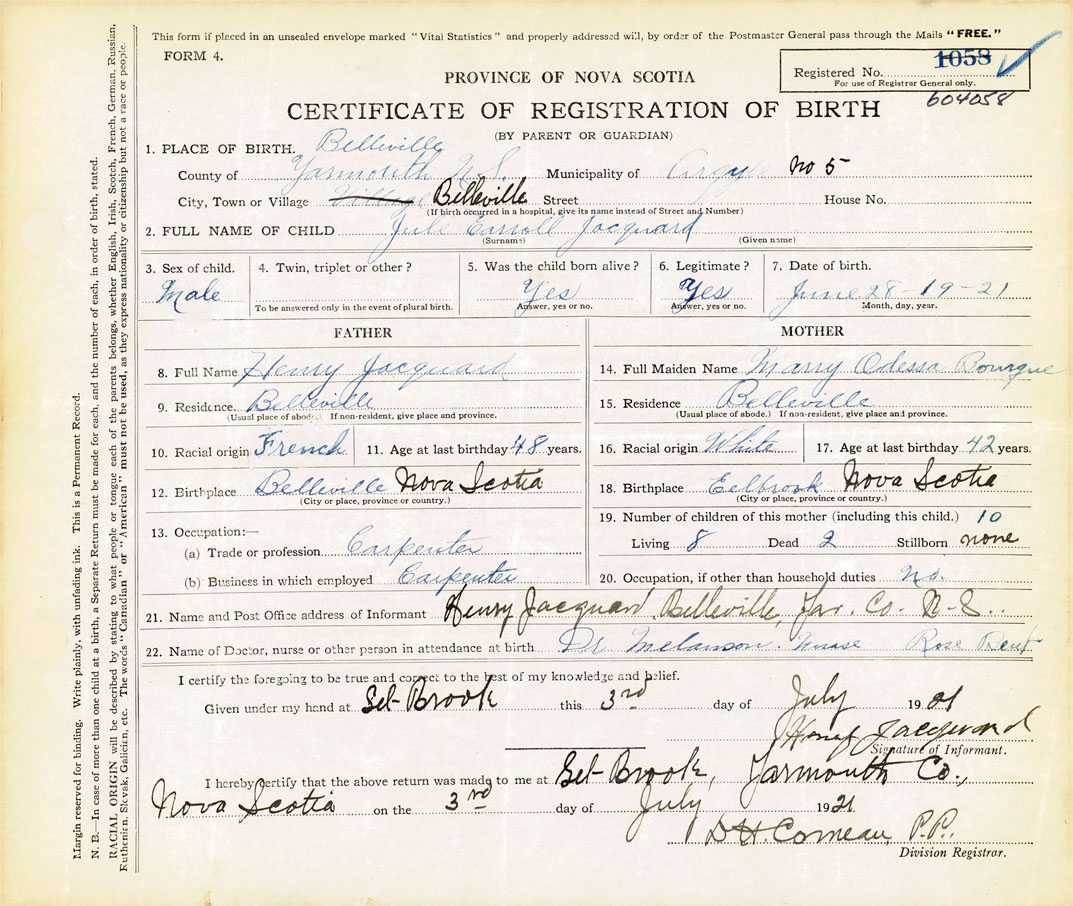 This form if placed in an unsealed envelope marked "Vital Statistics" and properly addressed will, by order of the Postmaster General pass through the Mails "FREE."
FORM 4.
1058
Registered No.
For use of Registrar General only.
604058
PROVINCE OF NOVA SCOTIA
CERTIFICATE OF REGISTRATION OF BIRTH
(BY PARENT OR GUARDIAN)
1. PLACE OF BIRTH. Belleville
County of Yarmouth N.S. Municipality of no 5
City, Town or Village Village Belleville Street House No.
(If birth occurred in a hospital, give its name instead of Street and Number)
2. FULL NAME OF CHILD Carroll Jacquard
(Surname) (Given name)
3. Sex of child. 4. Twin, triplet or other? 5. Was the child born alive? 6. Legitimate? 7. Date of birth.
Male Yes Yes June 28-19-21
To be answered only in the event of plural birth. Answer, yes or no. Answer, yes or no. Month, day, year.
FATHER
8. Full Name Henry Jacquard
9. Residence. Belleville
(Usual place of abode.) If non-resident, give place and province.
10. Racial origin French 11. Age at last birthday 48 years.
12. Birthplace Belleville Nova Scotia
(City or place, province or country.)
13. Occupation:—
(a) Trade or profession Carpenter
(b) Business in which employed Carpenter
MOTHER
14. Full Maiden Name Marry Odessa Bourque
15. Residence Belleville
(Usual place of abode.) If non-resident, give place and province.
16. Racial origin White 17. Age at last birthday 42 years.
18. Birthplace Eelbrook Nova Scotia
(City or place, province or country.)
19. Number of children of this mother (including this child.) 10
Living 8 Dead 2 Stillborn none
20. Occupation, if other than household duties no.
21. Name and Post Office address of Informant Henry Jacquard Belleville, Yar. Co. N-S.
22. Name of Doctor, nurse or other person in attendance at birth Dr Melanson. nurse Rose
I certify the foregoing to be true and correct to the best of my knowledge and belief.
Given under my hand at Eel-Brook this 3rd day of July 1921
Henry Jacquard
Signature of Informant.
I hereby certify that the above return was made to me at Eel-Brook, Yarmouth Co.,
Nova Scotia on the 3rd day of July 1921.
D H. Comeau, P.P.
Division Registrar.
Margin reserved for binding. Write plainly, with unfading ink. This is a Permanent Record.
N. B.—In case of more than one child at a birth, a Separate Return must be made for each, and the number of each, in order of birth, stated.
RACIAL ORIGIN will be described by stating to what people or tongue each of the parents belongs, whether English, Irish, Scotch, French, German, Russian,
Ruthenien, Slovak, Galicien, etc. The words "Canadian" or "American" must not be used, as they express nationality or citizenship but not a race or people.